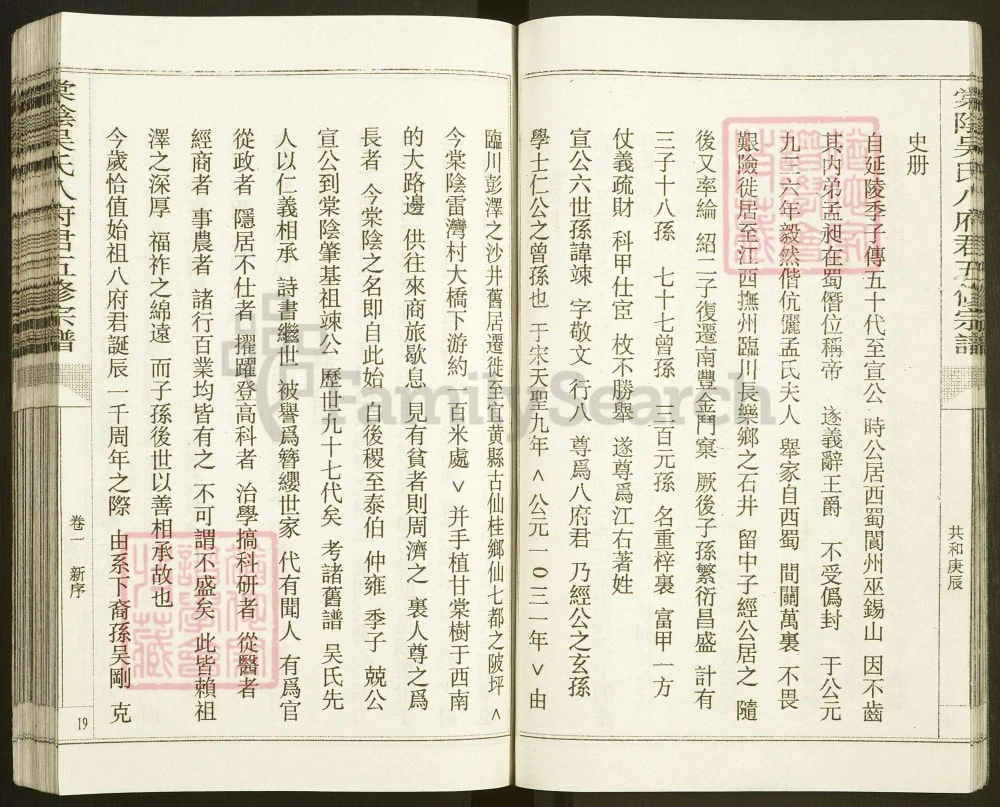 棠陰吳氏八府君五修宗譜
共和庚辰
史册
自延陵季子傳五十代至宣公 時公居西蜀閬州巫錫山 因不齒
其内弟孟昶在蜀僭位稱帝 遂義辭王爵 不受僞封 于公元
九三六年毅然偕伉儷孟氏夫人 舉家自西蜀 間關萬裏 不畏
艱險徙居至江西撫州臨川長樂鄉之石井 留中子經公居之 隨
後又率綸 紹二子復遷南豐金鬥窠 厥後子孫繁衍昌盛 計有
三子十八孫 七十七曾孫 三百元孫 名重梓裏 富甲一方
仗義疏財 科甲仕宦 枚不勝舉 遂尊爲江右著姓
宣公六世孫諱竦 字敬文 行八 尊爲八府君 乃經公之玄孫
學士仁公之曾孫也 于宋天聖九年 ︿ 公元一〇三一年 ﹀ 由
臨川彭澤之沙井舊居遷徙至宜黄縣古仙桂鄉仙七都之陂坪 ︿
今棠陰雷灣村大橋下游約一百米處 ﹀ 并手植甘棠樹于西南
的大路邊 供往來商旅歇息 見有貧者則周濟之 裏人尊之爲
長者 今棠陰之名即自此始 自後稷至泰伯 仲雍 季子 兢公
宣公到棠陰肇基祖竦公 歷世九十七代矣 考諸舊譜 吴氏先
人以仁義相承 詩書繼世 被譽爲簪纓世家 代有聞人 有爲官
從政者 隱居不仕者 擢躍登高科者 治學搞科研者 從醫者
經商者 事農者 諸行百業均皆有之 不可謂不盛矣 此皆賴祖
澤之深厚 福祚之綿遠 而子孫後世以善相承故也
今歲恰值始祖八府君誕辰一千周年之際 由系下裔孫吴剛 克
卷一 新序
19
棠陰吳氏八府君五修宗譜
FamilySearch